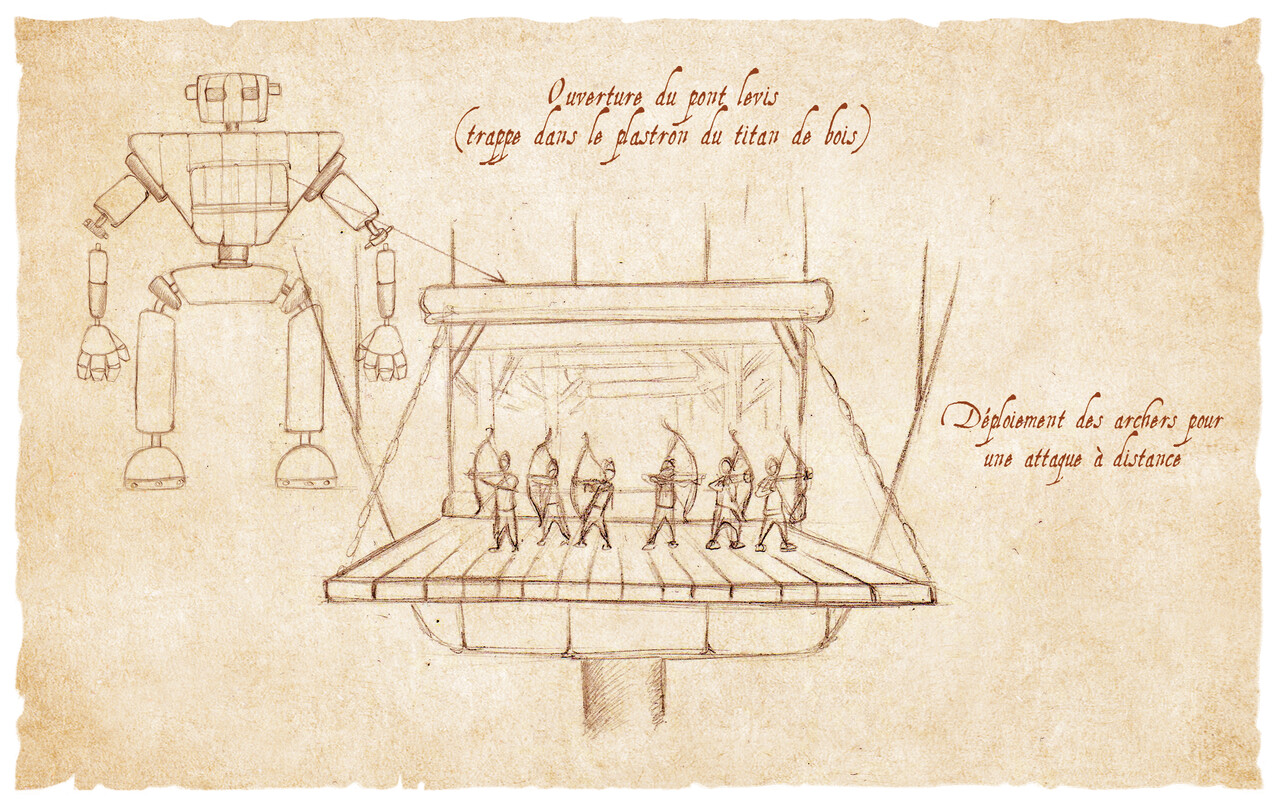 Ouverture du pont levis
(trappe dans le plastron du titan de bois)
Déploiement des archers pour
une attaque à distance